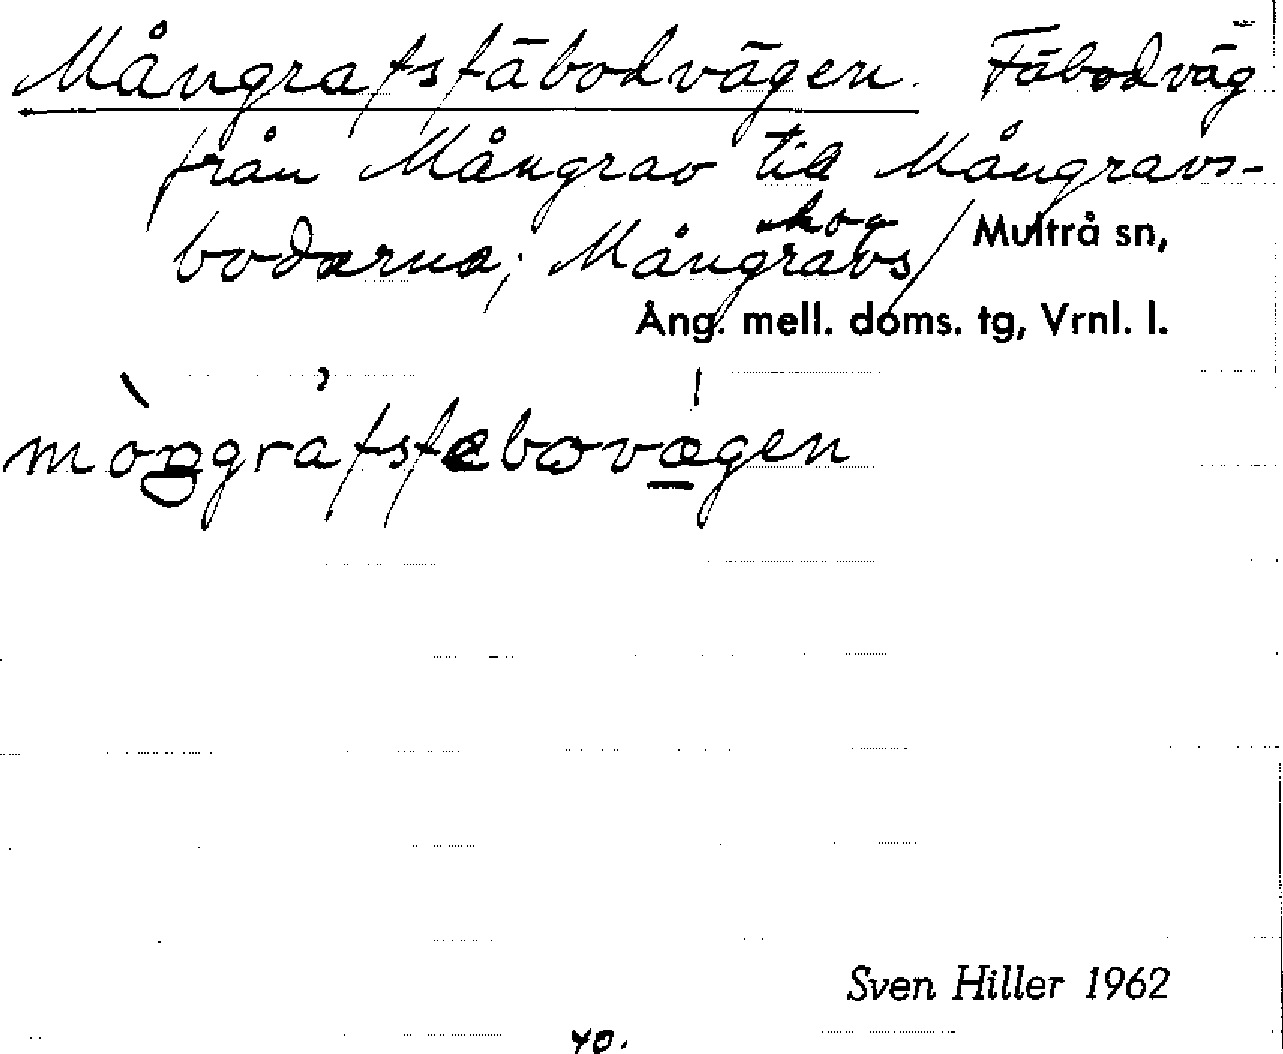 Mångrafsfäbodvägen. Fäbodväg
från Mångrav till Mångravs-
bodarna; Mångravs skog Multrå sn,
Ång. mell. doms. tg, Vrnl. l.
mòŋgràfsfæbovægen
Sven Hiller 1962
40.